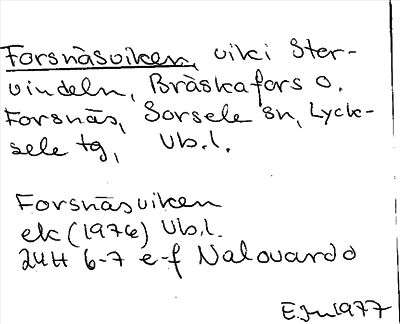 Forsnäsviken, vik i Ster-
vindeln, Bräskafors o.
Forsnäs, Sorsele sn, Lyck-
sele tg, Vb.l.
Forsnäsviken
ek (1976) Vb.l.
24H 6-7 e-f Nalovardo
1977